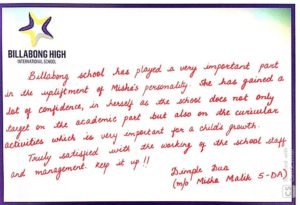 BILLABONG HIGH
INTERNATIONAL SCHOOL
Billabong school has played a very important part
in the upliftment of Misha's personality. She has gained a
lot of confidence, in herself as the school does not only
target on the academic part but also on the curricular
activities which is very important for a child's growth.
Truly satisfied with the working of the school staff
and management. Keep it up !!
Dimple Dua
(m/o Misha Malik 5-DA)